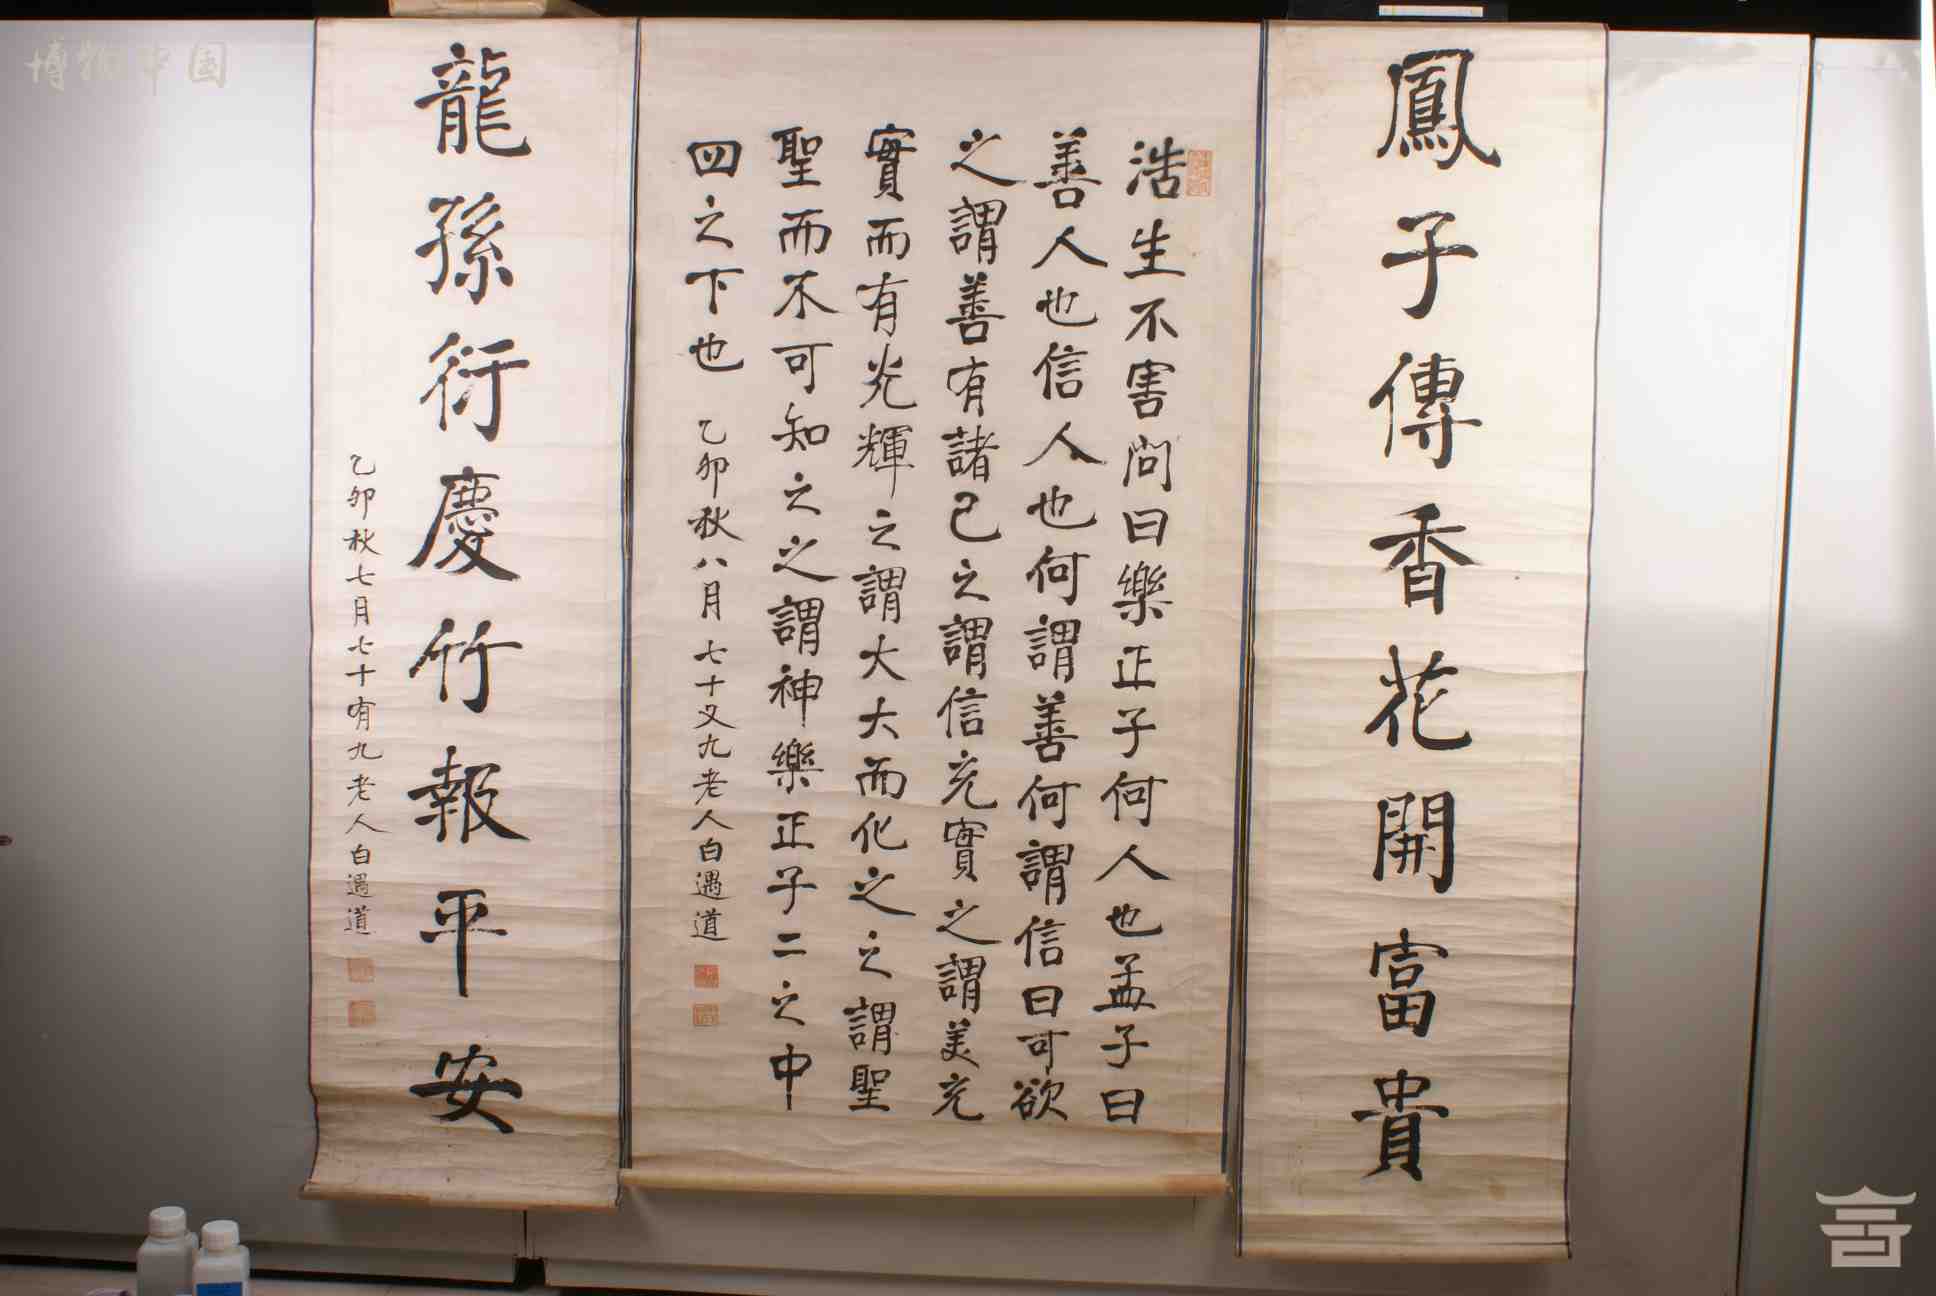 鳳子傳香花開富貴
浩生不害問曰樂正子何人也孟子曰
善人也信人也何謂善何謂信曰可欲
之謂善有諸己之謂信充實之謂美充
實而有光輝之謂大大而化之之謂聖
聖而不可知之之謂神樂正子二之中
四之下也
乙卯秋八月七十又九老人白遇道
龍孫衍慶竹報平安
乙卯秋七月七十有九老人白遇道
博物中国